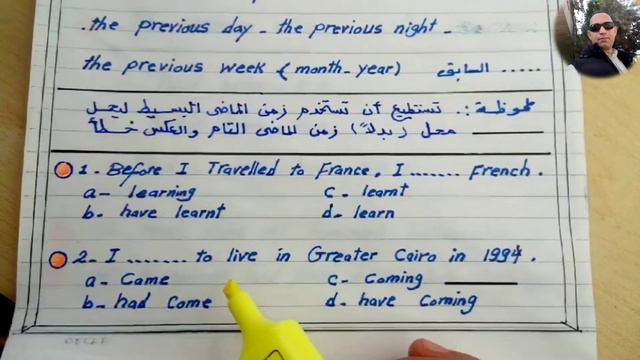 .the previous day - the previous night -
the previous week (month-year) السابق .....
ملحوظة:. تستطيع أن تستخدم زمن الماضى البسيط ليحل
محل (بدلاً) زمن الماضى التام والعكس خطأ
1. Before I Travelled to France, I ....... French.
a- learning c. learnt
b. have learnt d. learn
2- I ........ to live in Greater Cairo in 1994.
a- Came c- Coming
b- had Come d. have Coming